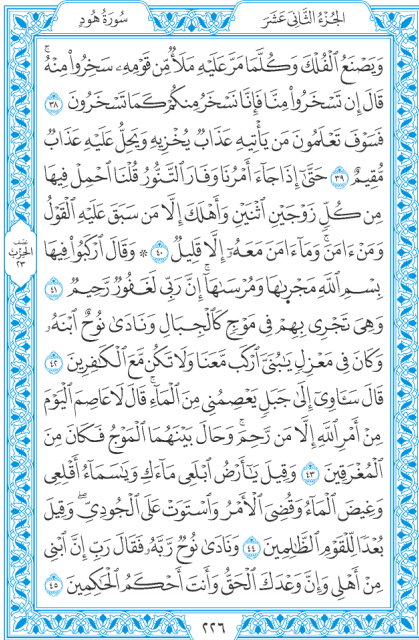 الجُزْءُ الثَّانِي عَشَرَ
سُورَةُ هُودٍ
وَيَصْنَعُ ٱلْفُلْكَ وَكُلَّمَا مَرَّ عَلَيْهِ مَلَأٌ مِّن قَوْمِهِۦ سَخِرُوا۟ مِنْهُ ۚ
قَالَ إِن تَسْخَرُوا۟ مِنَّا فَإِنَّا نَسْخَرُ مِنكُمْ كَمَا تَسْخَرُونَ ٣٨
فَسَوْفَ تَعْلَمُونَ مَن يَأْتِيهِ عَذَابٌ يُخْزِيهِ وَيَحِلُّ عَلَيْهِ عَذَابٌ
مُّقِيمٌ ٣٩ حَتَّىٰٓ إِذَا جَآءَ أَمْرُنَا وَفَارَ ٱلتَّنُّورُ قُلْنَا ٱحْمِلْ فِيهَا
مِن كُلٍّ زَوْجَيْنِ ٱثْنَيْنِ وَأَهْلَكَ إِلَّا مَن سَبَقَ عَلَيْهِ ٱلْقَوْلُ
وَمَنْ ءَامَنَ ۚ وَمَآ ءَامَنَ مَعَهُۥٓ إِلَّا قَلِيلٌ ٤٠ ۞ وَقَالَ ٱرْكَبُوا۟ فِيهَا
بِسْمِ ٱللَّهِ مَجْر۪ىٰهَا وَمُرْسَىٰهَآ ۚ إِنَّ رَبِّى لَغَفُورٌ رَّحِيمٌ ٤١
وَهِىَ تَجْرِى بِهِمْ فِى مَوْجٍ كَٱلْجِبَالِ وَنَادَىٰ نُوحٌ ٱبْنَهُۥ
وَكَانَ فِى مَعْزِلٍ يَٰبُنَىَّ ٱرْكَب مَّعَنَا وَلَا تَكُن مَّعَ ٱلْكَٰفِرِينَ ٤٢
قَالَ سَـَٔاوِىٓ إِلَىٰ جَبَلٍ يَعْصِمُنِى مِنَ ٱلْمَآءِ ۚ قَالَ لَا عَاصِمَ ٱلْيَوْمَ
مِنْ أَمْرِ ٱللَّهِ إِلَّا مَن رَّحِمَ ۚ وَحَالَ بَيْنَهُمَا ٱلْمَوْجُ فَكَانَ مِنَ
ٱلْمُغْرَقِينَ ٤٣ وَقِيلَ يَٰٓأَرْضُ ٱبْلَعِى مَآءَكِ وَيَٰسَمَآءُ أَقْلِعِى
وَغِيضَ ٱلْمَآءُ وَقُضِىَ ٱلْأَمْرُ وَٱسْتَوَتْ عَلَى ٱلْجُودِىِّ ۖ وَقِيلَ
بُعْدًا لِّلْقَوْمِ ٱلظَّٰلِمِينَ ٤٤ وَنَادَىٰ نُوحٌ رَّبَّهُۥ فَقَالَ رَبِّ إِنَّ ٱبْنِى
مِنْ أَهْلِى وَإِنَّ وَعْدَكَ ٱلْحَقُّ وَأَنتَ أَحْكَمُ ٱلْحَٰكِمِينَ ٤٥
نِصْف
الحِزْب
٢٣
٢٢٦